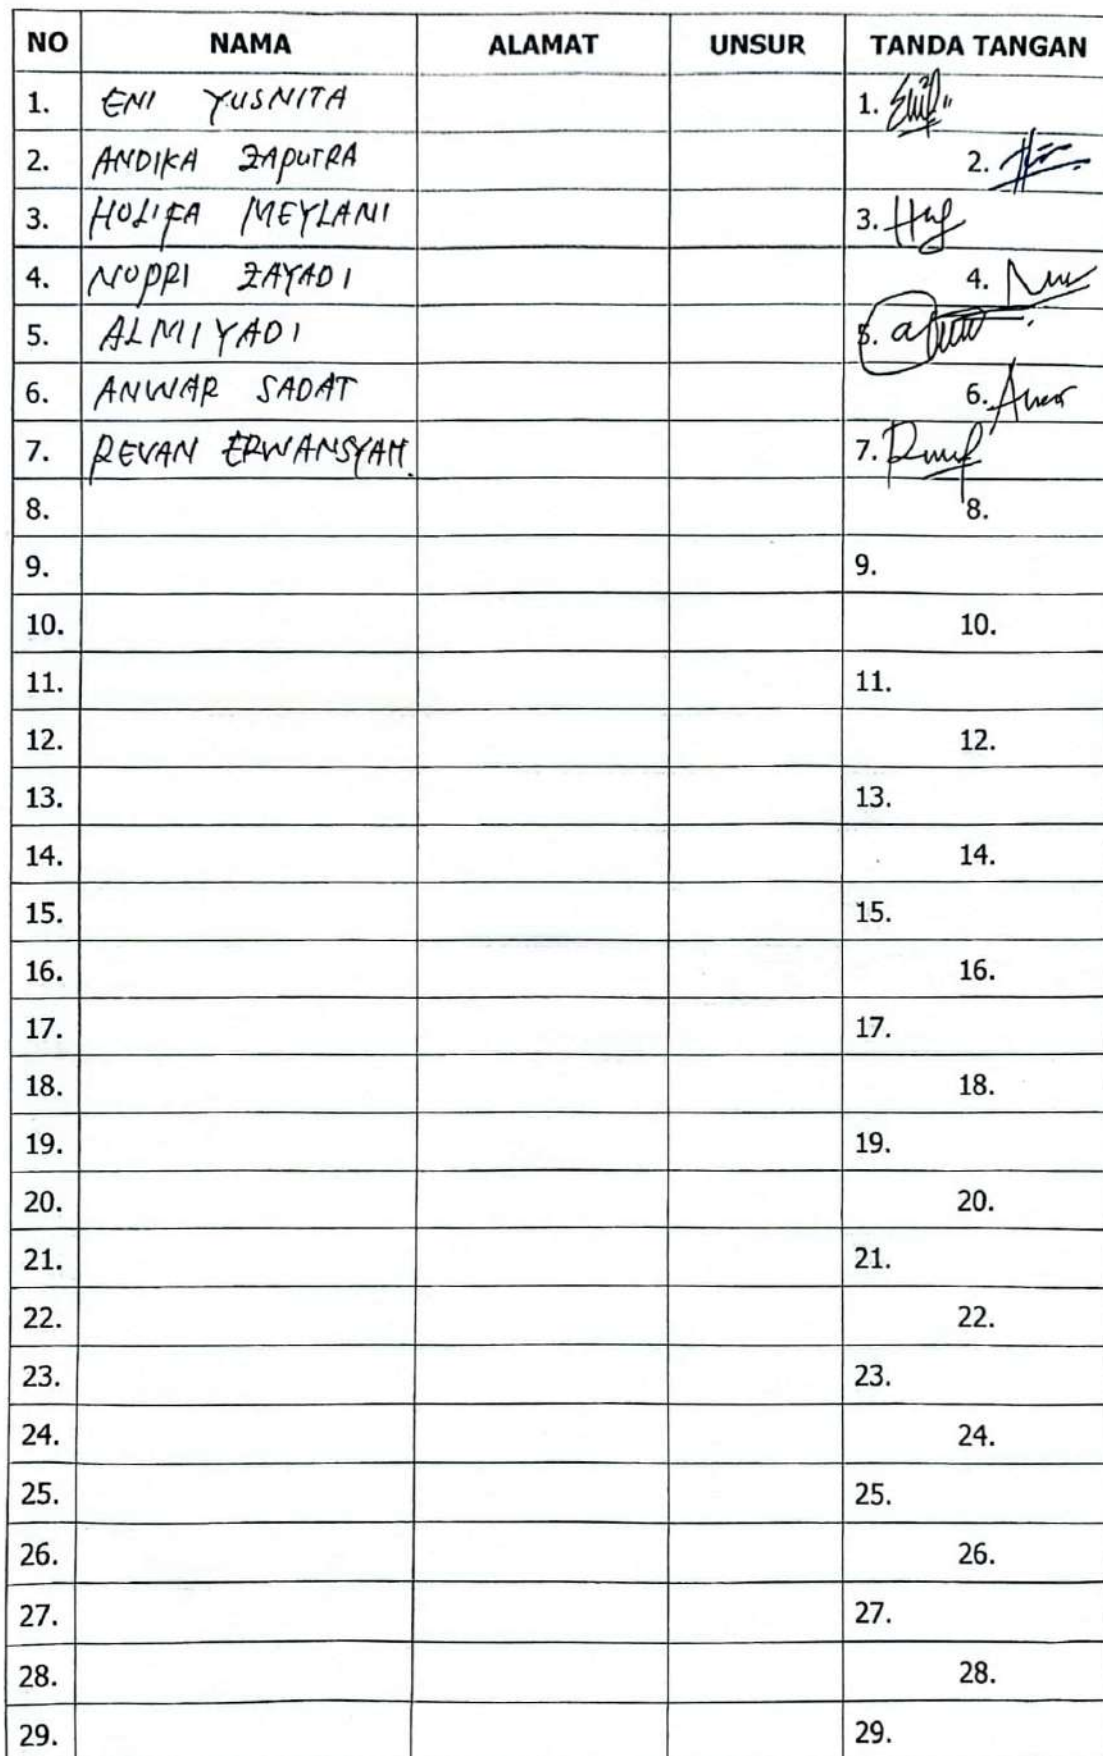 NO NAMA ALAMAT UNSUR TANDA TANGAN
1. ENI YUSNITA 1.
2. ANDIKA ZAPUTRA 2.
3. HOLIFA MEYLANI 3.
4. NOPRI ZAYADI 4.
5. ALMIYADI 5.
6. ANWAR SADAT 6.
7. REVAN ERWANSYAH. 7.
8. 8.
9. 9.
10. 10.
11. 11.
12. 12.
13. 13.
14. 14.
15. 15.
16. 16.
17. 17.
18. 18.
19. 19.
20. 20.
21. 21.
22. 22.
23. 23.
24. 24.
25. 25.
26. 26.
27. 27.
28. 28.
29. 29.